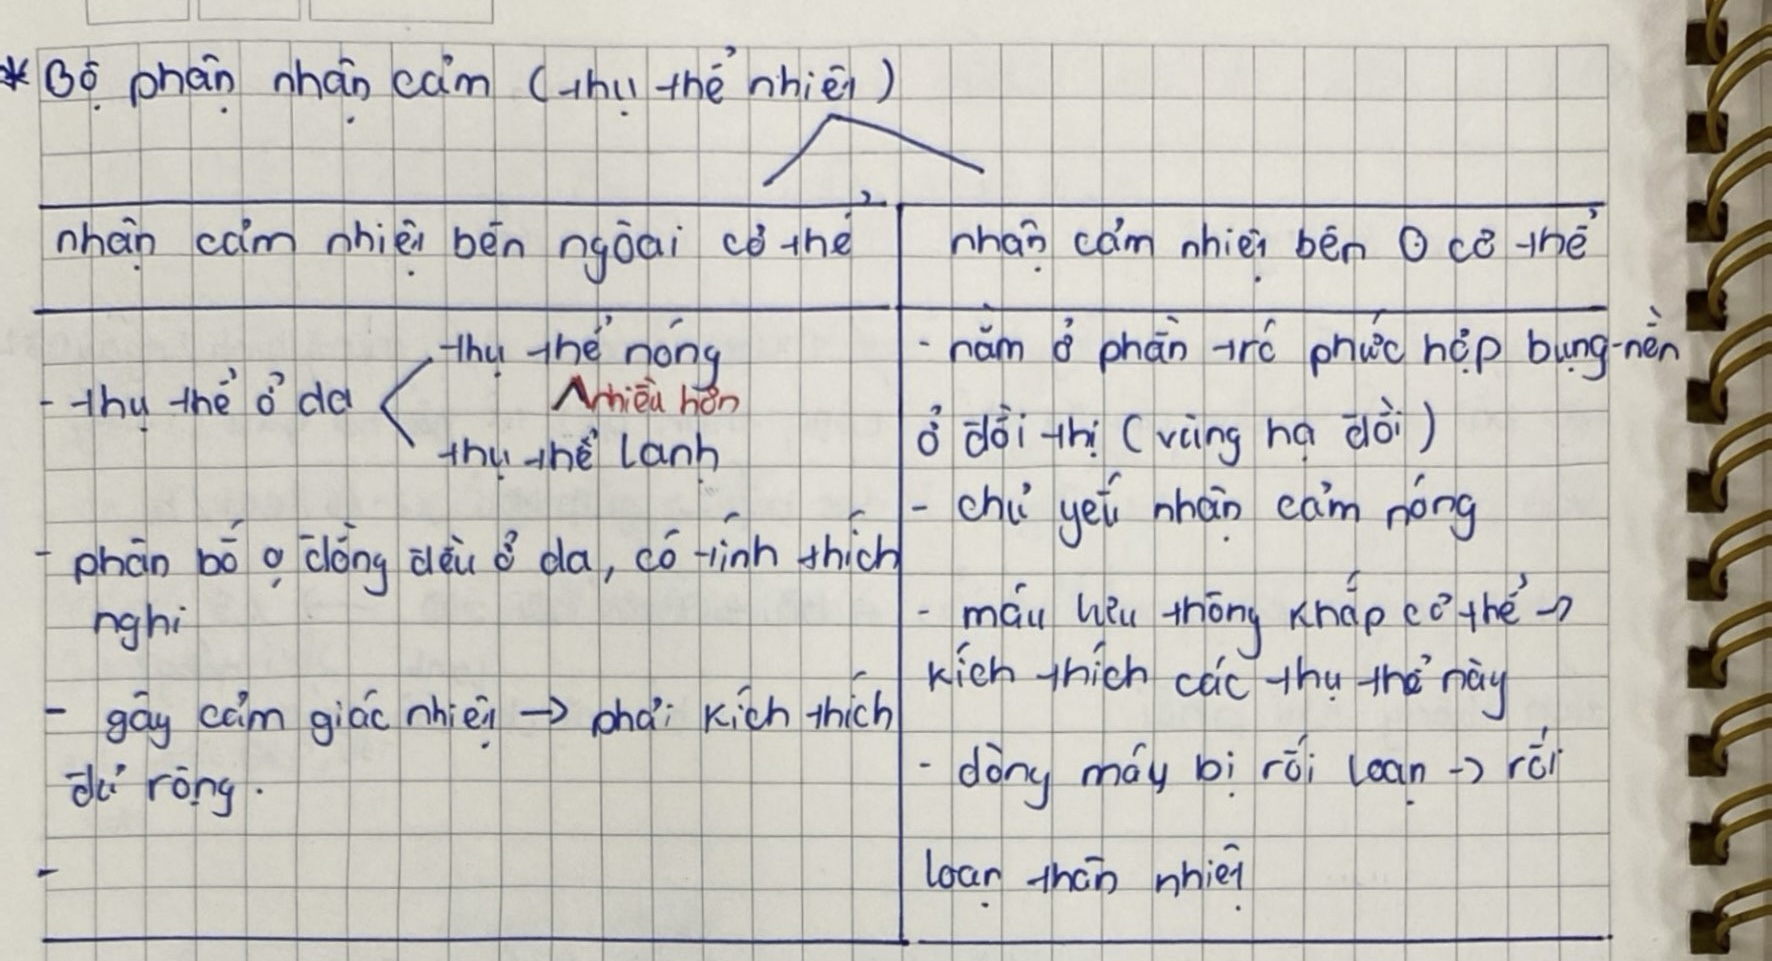 * Bộ phận nhận cảm (thụ thể nhiệt)
nhận cảm nhiệt bên ngoài cơ thể
- thụ thể ở da
thụ thể nóng
nhiều hơn
thụ thể lạnh
- phân bố đồng đều ở da, có tính thích
nghi
- gây cảm giác nhiệt → phải kích thích
đủ rộng.
-
nhận cảm nhiệt bên cơ thể
- nằm ở phần trc phức hợp bụng-nền
ở đồi thị (vùng hạ đồi)
- chủ yếu nhận cảm nóng
- máu lưu thông khắp cơ thể →
kích thích các thụ thể này
- dòng máy bị rối loạn → rối
loạn thân nhiệt